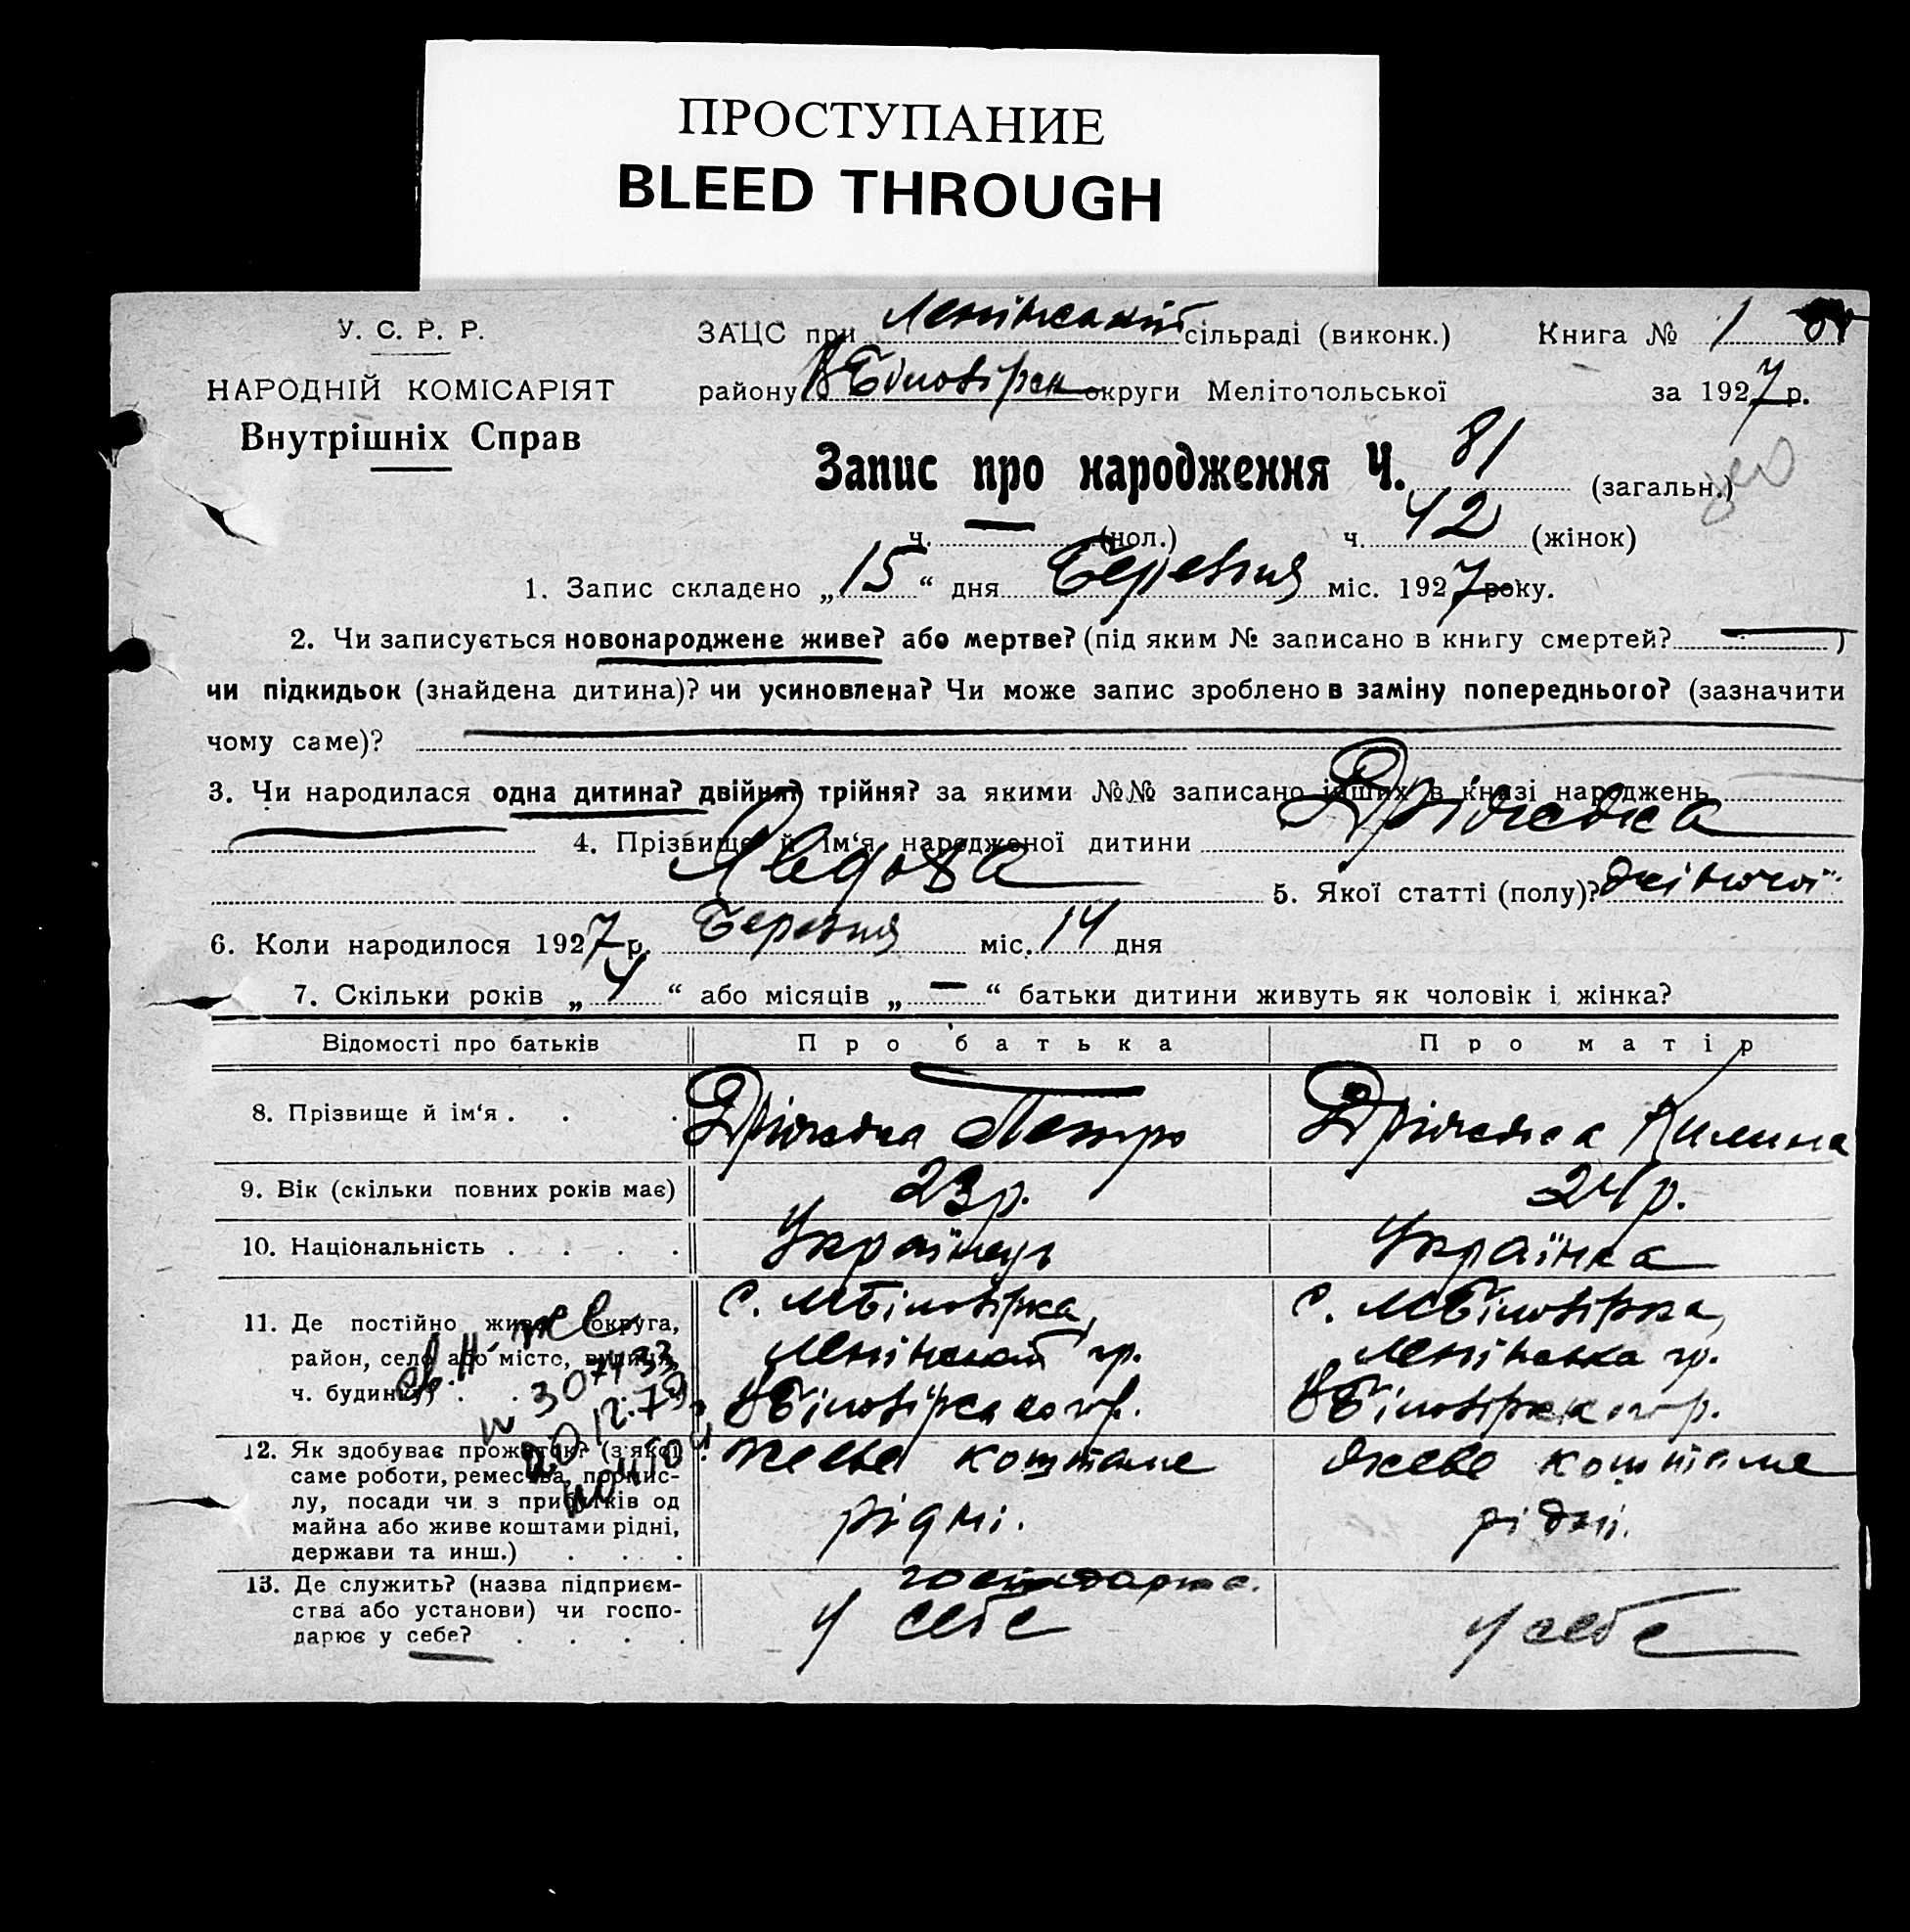 ПРОСТУПАНИЕ
BLEED THROUGH
У. С. Р. Р.
НАРОДНІЙ КОМІСАРІЯТ
Внутрішніх Справ
ЗАЦС при Ленінській сільраді (виконк.) Книга № 1
району В Біловірськ округи Мелітопольської за 1927 р.
Запис про народження Ч. 81 (загальн.)
ч. — (чол.) ч. 42 (жінок)
1. Запис складено „15“ дня Березня міс. 1927 року.
2. Чи записується новонароджене живе? або мертве? (під яким № записано в книгу смертей? — )
чи підкидьок (знайдена дитина)? чи усиновлена? Чи може запис зроблено в заміну попереднього? (зазначити
чому саме)?
3. Чи народилася одна дитина? двійня? трійня? за якими №№ записано інших в книзі народжень
4. Прізвище й ім‘я народженої дитини
5. Якої статті (полу)? жіночої
6. Коли народилося 1927 р. Березня міс. 14 дня
7. Скільки років „4“ або місяців „—“ батьки дитини живуть як чоловік і жінка?
Відомості про батьків Про батька Про матір
8. Прізвище й ім‘я . . . Петро Килина
9. Вік (скільки повних років має) 23 р. 24 р.
10. Національність . . . . Українець Українка
11. Де постійно живе округа, с. МБіловірка, с. МБіловірка,
район, село або місто, вулиця, Ленінської гр. Ленінська гр.
ч. будинку) . .
№ 307433
20/12.79
12. Як здобуває прожиток? (з якої живе коштами живе коштами
саме роботи, ремества, промис-
лу, посади чи з прибутків од рідні. рідні.
майна або живе коштами рідні,
держави та инш.) . . . .
13. Де служить? (назва підприєм- господарює.
ства або установи) чи госпо- у себе у себе
дарює у себе? . . . .